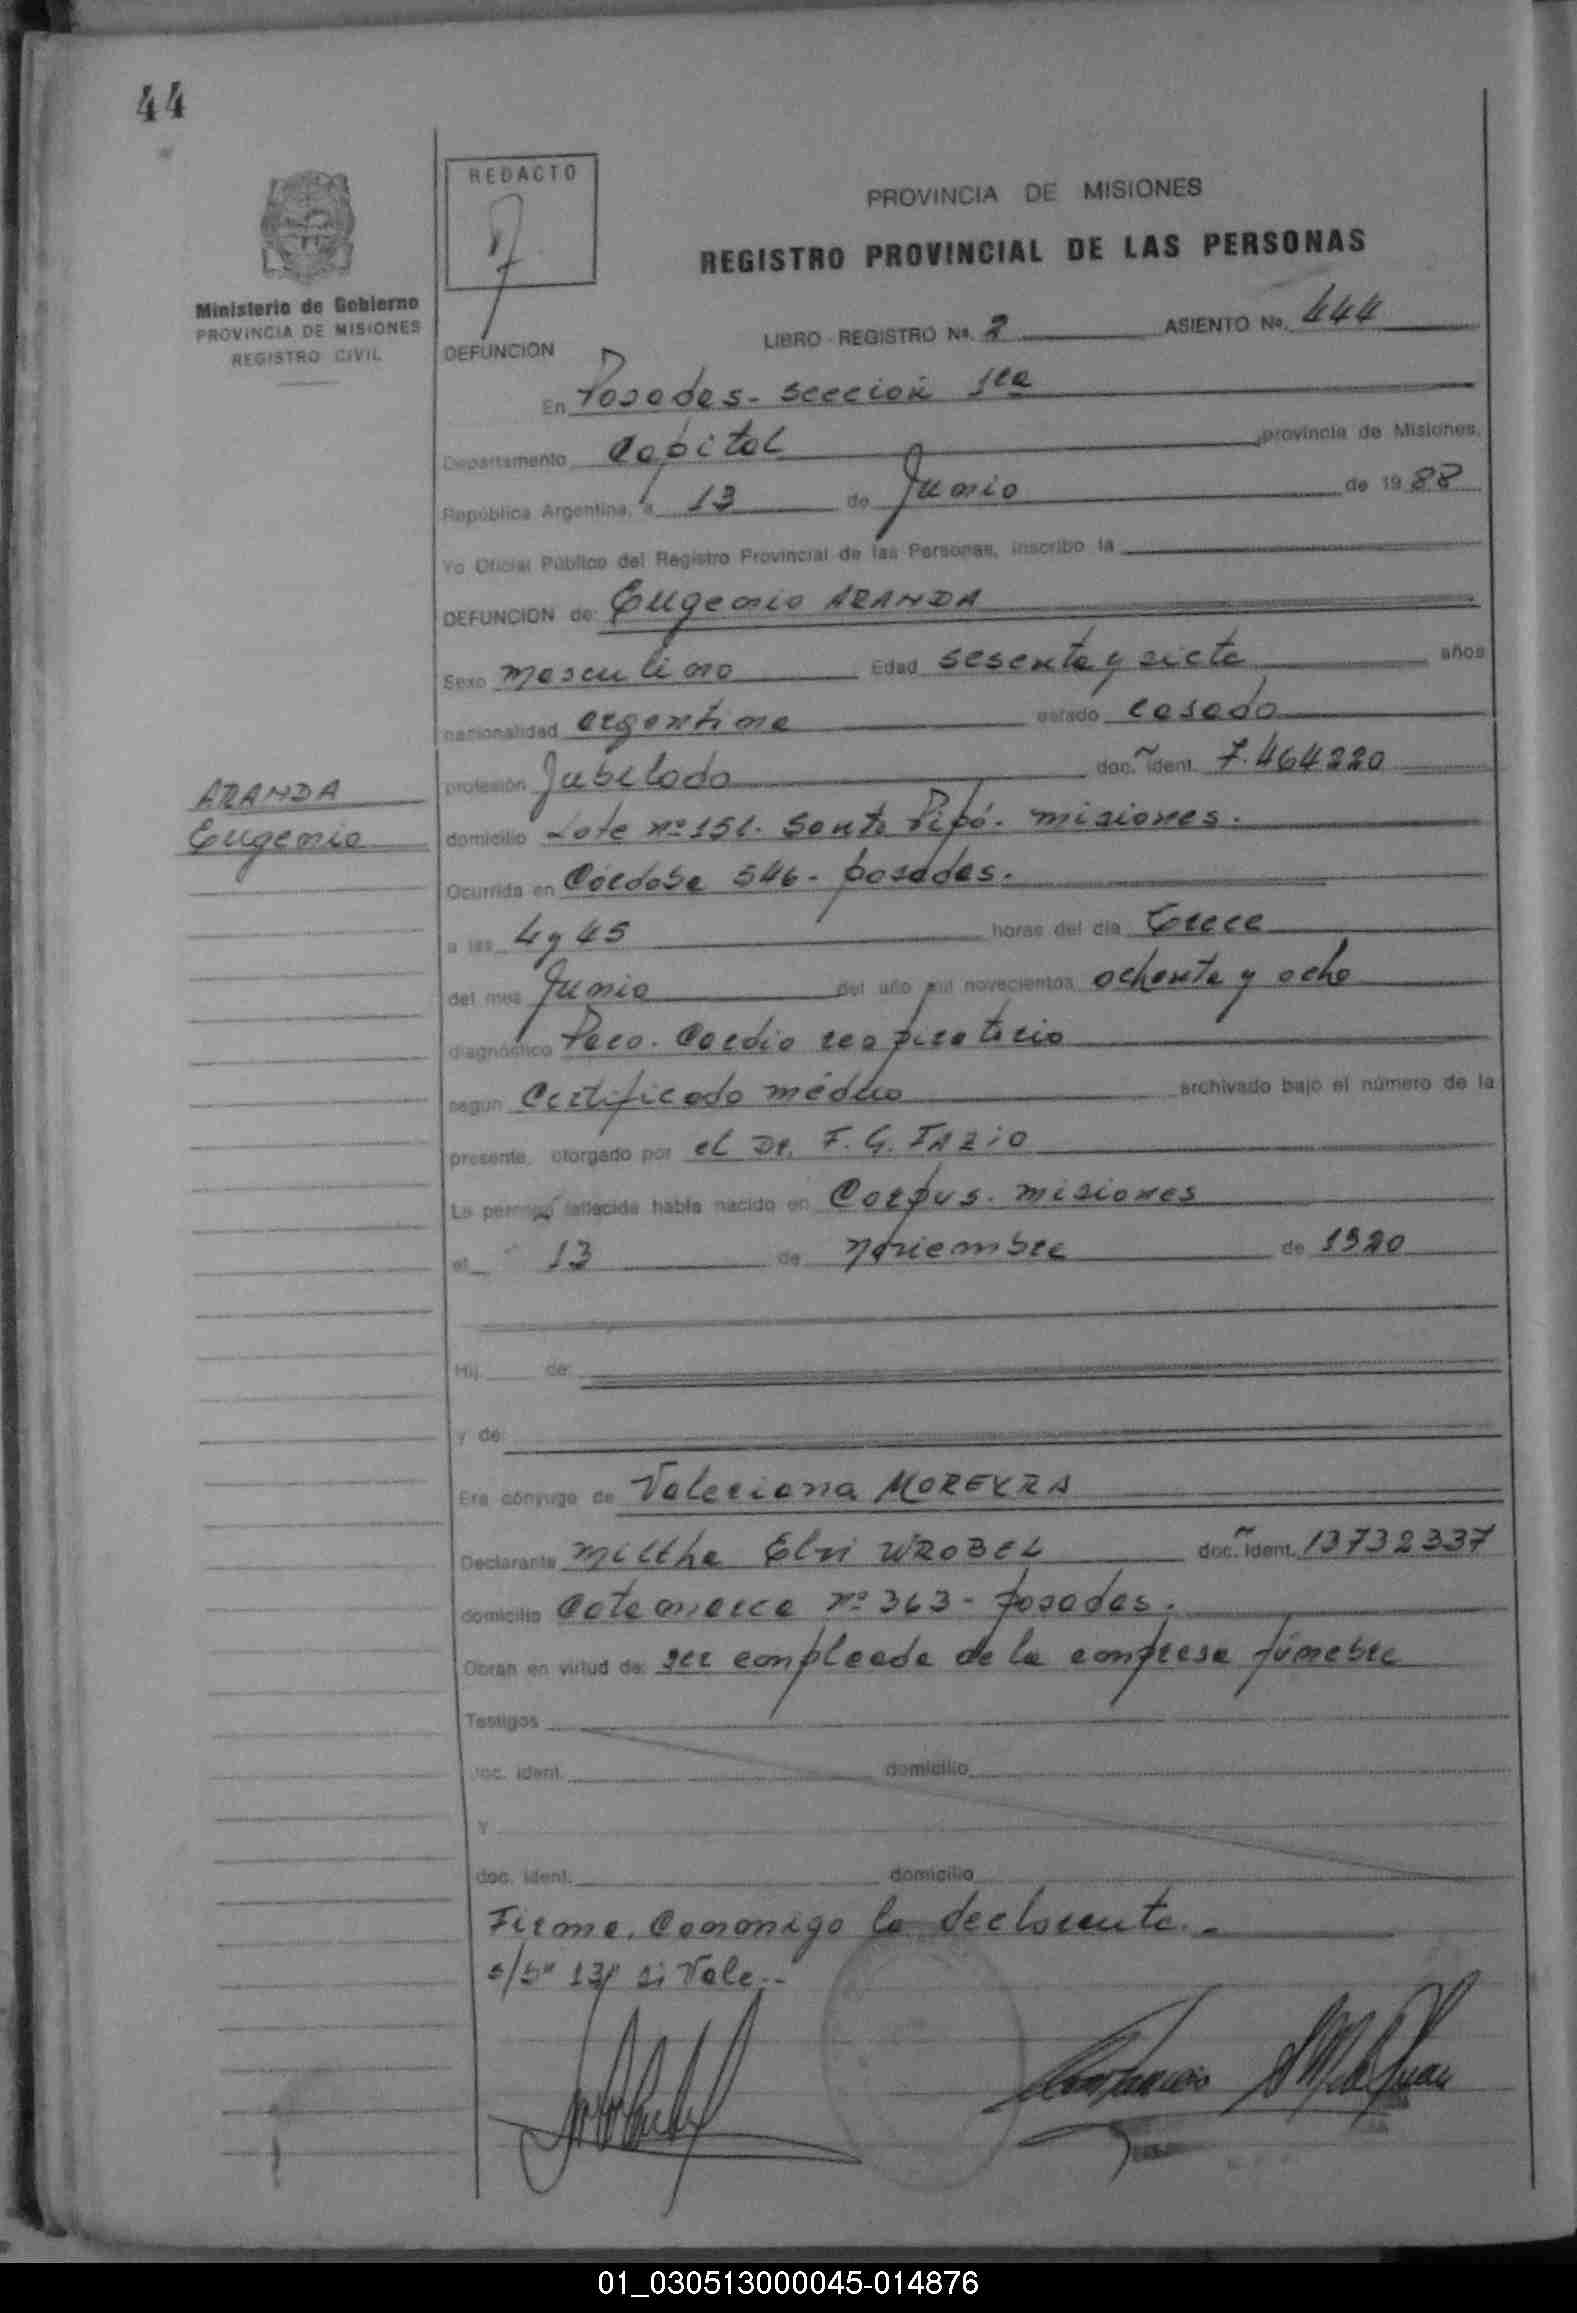 44
REDACTO
PROVINCIA DE MISIONES
REGISTRO PROVINCIAL DE LAS PERSONAS
Ministerio de Gobierno
PROVINCIA DE MISIONES
REGISTRO CIVIL
LIBRO - REGISTRO No. 2 ASIENTO No. 444
DEFUNCION
En Posadas - Sección 1ra
Departamento Capital provincia de Misiones,
República Argentina, a 13 de Junio de 1988
Yo Oficial Público del Registro Provincial de las Personas, inscribo la
DEFUNCION de: Eugenio ARANDA
Sexo masculino Edad sesenta y siete años
nacionalidad argentina estado casado
profesión Jubilado doc. ident. 7.464220
ARANDA
Eugenio
domicilio Lote nº 151. Santo Pipó. misiones.
Ocurrida en Córdoba 546 - posadas.
a las 4 y 45 horas del día trece
del mes Junio del año mil novecientos ochenta y ocho
diagnóstico Paro. Cardio respiratorio
según Certificado médico archivado bajo el número de la
presente, otorgado por el Dr. F. G. FAZIO
La persona fallecida había nacido en Corpus. misiones
el 13 de noviembre de 1920
Hij de:
y de:
Era cónyuge de Valeriana MOREYRA
Declarante Mirtha Elvi WROBEL doc. ident. 13732337
domicilio Catamarca nº 363 - posadas.
Obran en virtud de: ser empleada de la empresa fúnebre
Testigos
doc. ident. domicilio
y
doc. ident. domicilio
Firma, Conmigo la declarante. -
s/b" 13" si Vale. -
01_030513000045-014876